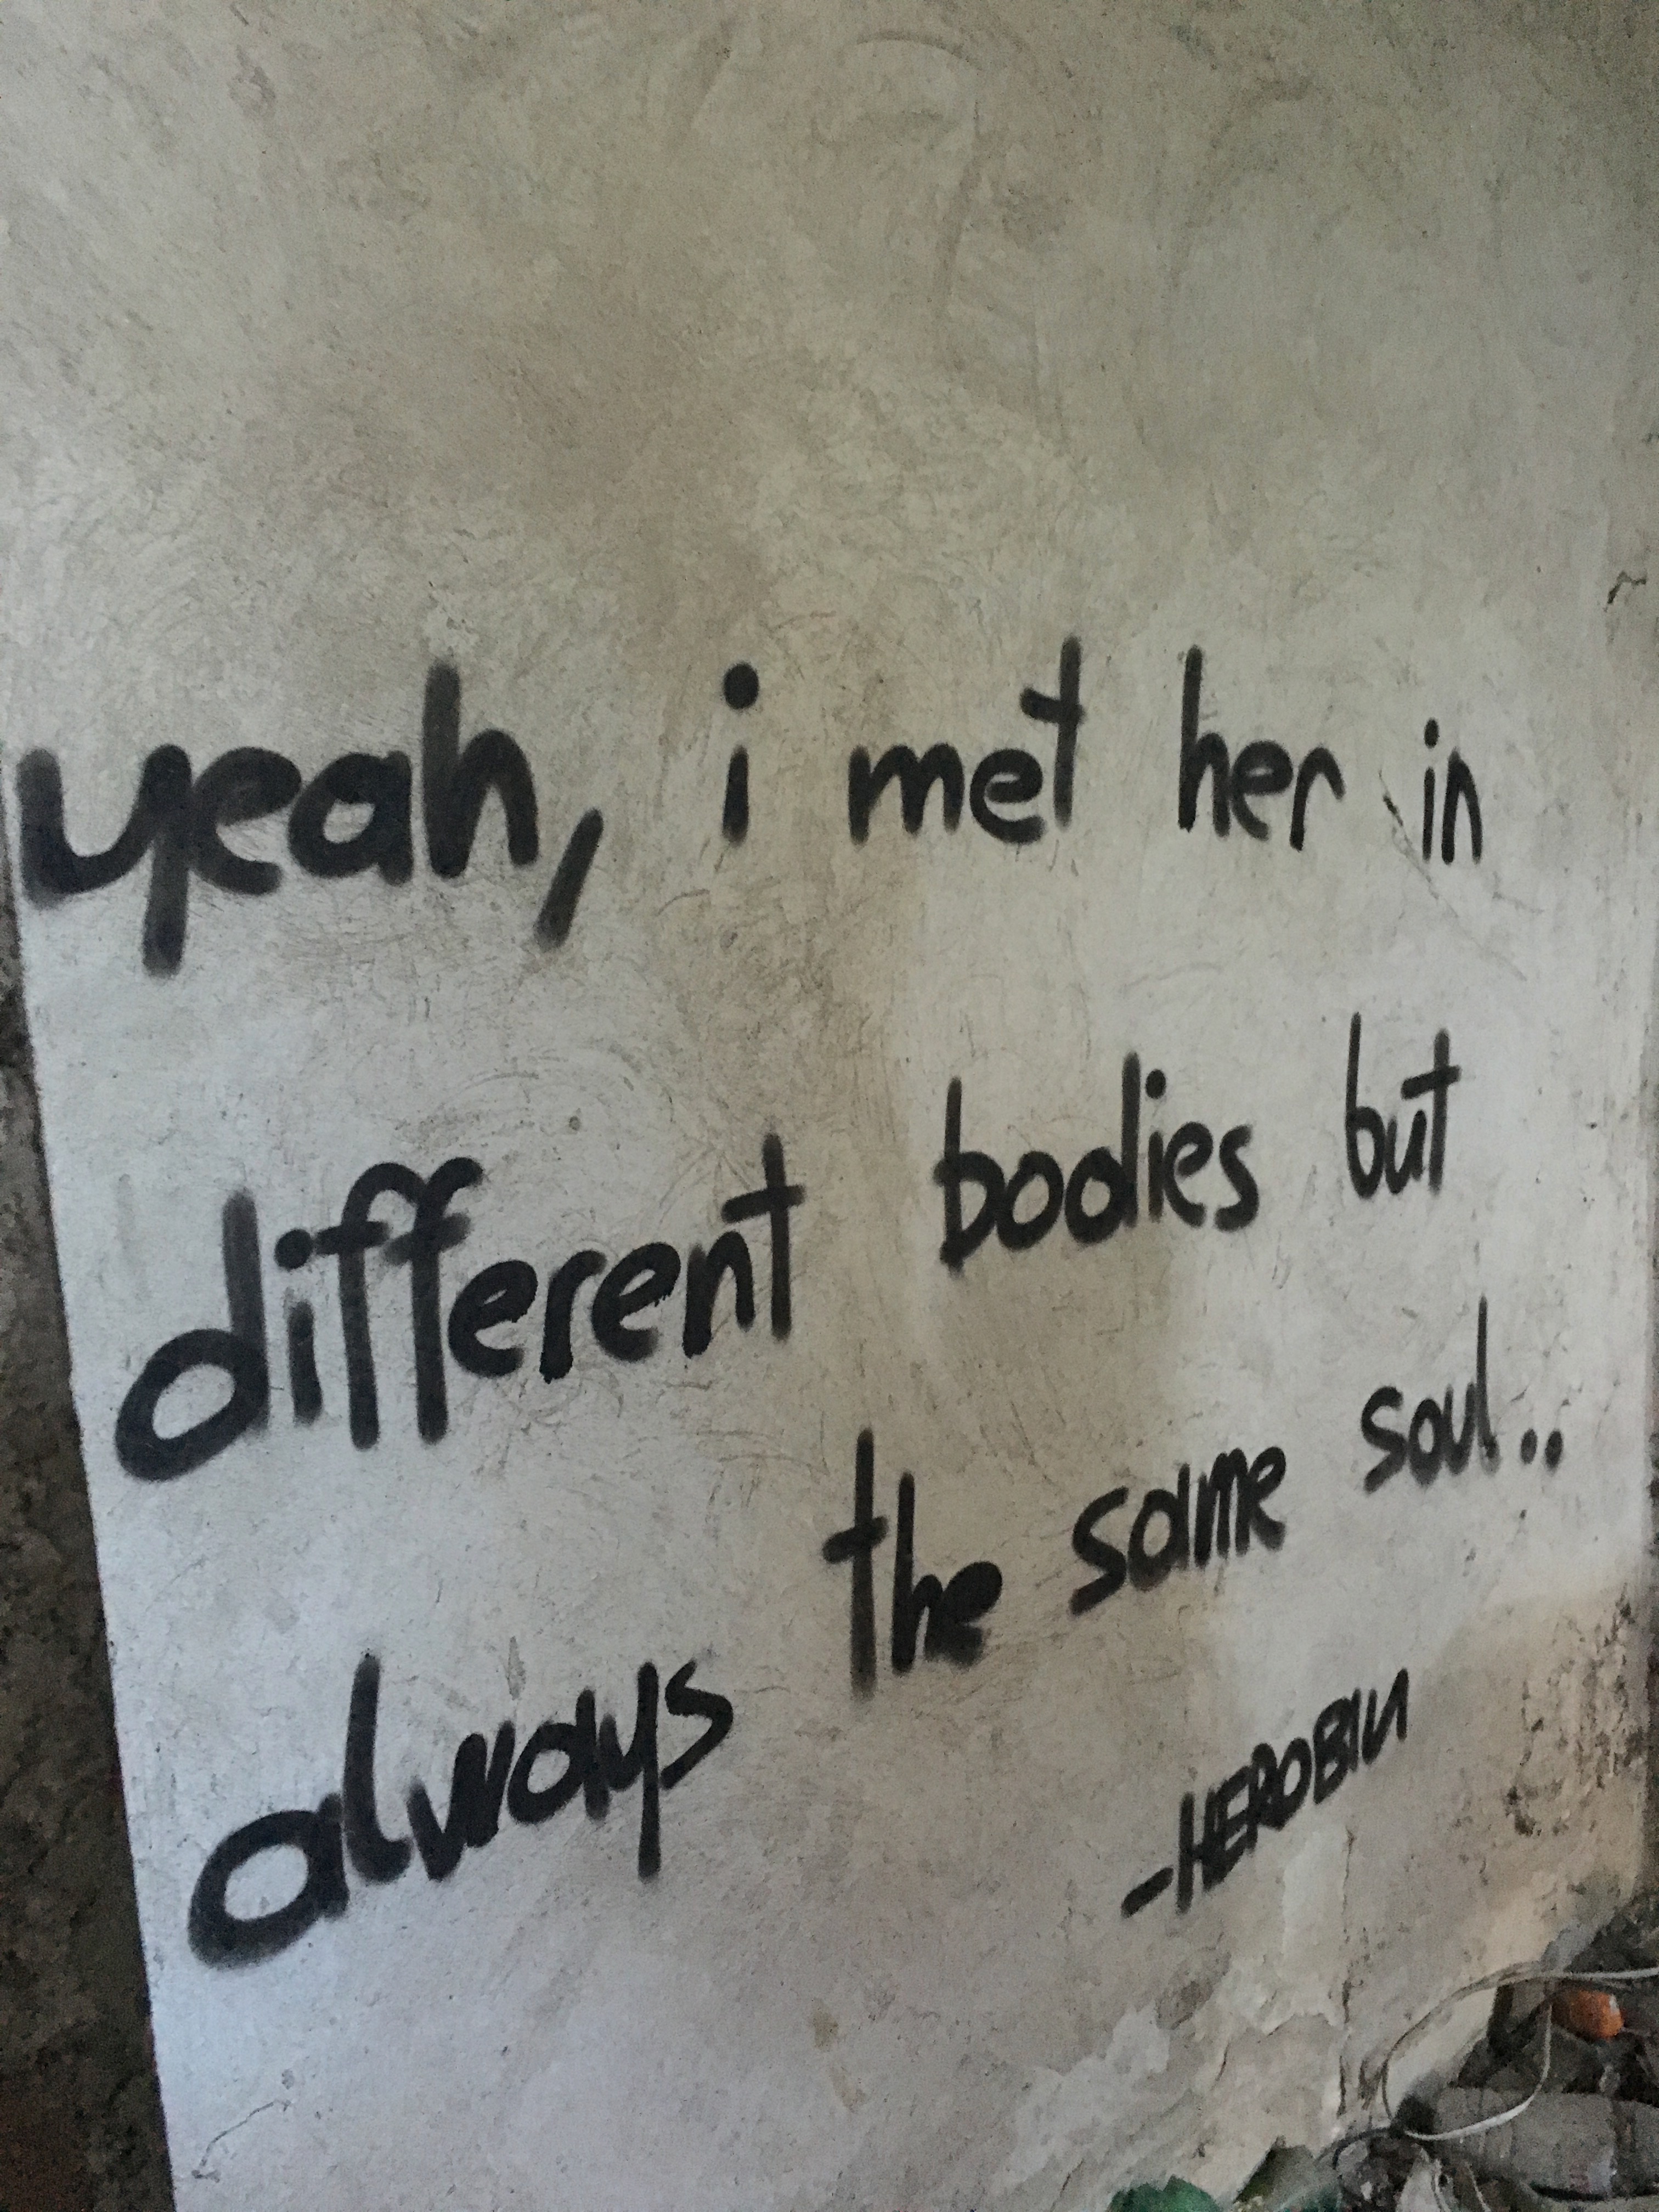 yeah, i met her in
different bodies but
always the same soul..
-HEROBIN